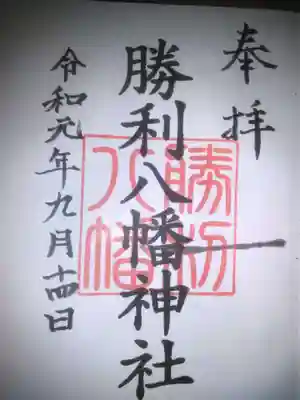 奉拝
勝利八幡神社
令和元年九月十四日
勝利
八幡